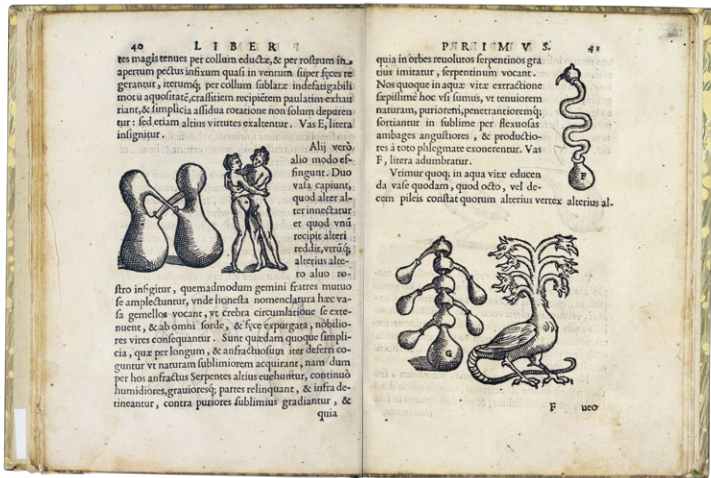 40 LIBER
tes magis tenues per collum eductæ, & per rostrum in
apertum pectus infixum quasi in ventum super fęces re
gerantur, iterumq; per collum sublatæ indefatigabili
motu aquositatē, crassitiem recipiētem paulatim exhau
riant, & simplicia assidua rotatione non solum depuren
tur: sed etiam altius virtutes exaltentur. Vas E, litera
insignitur.
Alij verò
alio modo ef-
fingunt. Duo
vasa capiunt,
quod alter al-
teri innectatur
et quod vnū
recipit alteri
reddit, vtrūq;
alterius alte-
ro aluo ro-
stro infigitur, quemadmodum gemini fratres mutuo
se amplectuntur, vnde honesta nomenclatura hæc va-
sa gemellos vocant, vt crebra circumlatione se exte-
nuent, & ab omni sorde, & fęce expurgata, nobilio-
res vires consequantur. Sunt quædam quoque simpli-
cia, quæ per longum, & anfractuosum iter deferri co-
guntur vt naturam sublimiorem acquirant, nam dum
per hos anfractus Serpentes altius euehuntur, continuò
humidiores, grauioresq; partes relinquant, & infra de-
tineantur, contra puriores sublimius gradiantur, &
quia
PRIMVS. 41
quia in orbes reuolutos serpentinos gra
tius imitatur, serpentinum vocant.
Nos quoque in aquæ vitæ extractione
sæpissime hoc vsi sumus, vt tenuiorem
naturam, puriorem, penetrantioremq;
sortiantur in sublime per flexuosas
ambages angustiores, & productio-
res à toto phlegmate exonerentur. Vas
F, litera adumbratur.
F
Vtimur quoq; in aqua vitæ educen
da vase quodam, quod octo, vel de-
cem pileis constat quorum alterius vertex alterius al-
G
F ueo